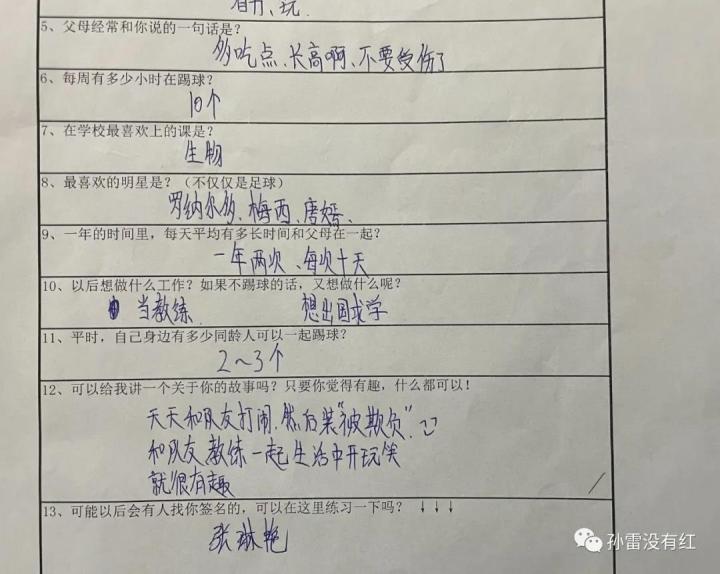 看书、玩
5、父母经常和你说的一句话是？
多吃点、长高啊、不要受伤了
6、每周有多少小时在踢球？
10个
7、在学校最喜欢上的课是？
生物
8、最喜欢的明星是？（不仅仅是足球）
罗纳尔多、梅西、唐嫣、
9、一年的时间里，每天平均有多长时间和父母在一起？
一年两次、每次十天
10、以后想做什么工作？如果不踢球的话，又想做什么呢？
当教练 想出国求学
11、平时，自己身边有多少同龄人可以一起踢球？
2～3个
12、可以给我讲一个关于你的故事吗？只要你觉得有趣，什么都可以！
天天和队友打闹.然后装"被欺负".
和队友教练一起生活中开玩笑
就很有趣
13、可能以后会有人找你签名的，可以在这里练习一下吗？ ↓↓↓
张琳艳
孙雷没有红